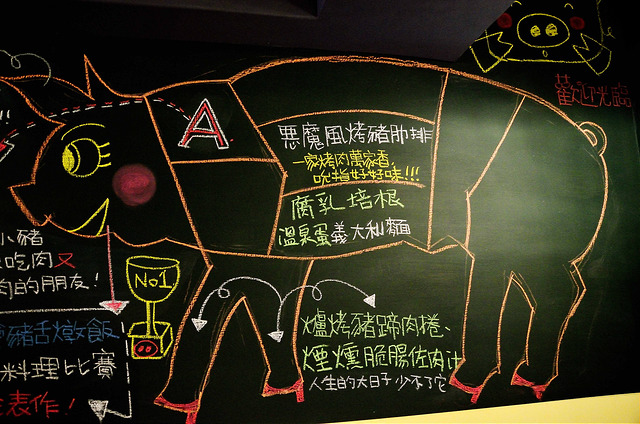 歡迎光臨
A
惡魔風烤豬肋排
一家烤肉萬家香,
吮指好好味!!!
腐乳培根
溫泉蛋義大利麵
小豬
吃肉又
肉的朋友!
No1
豬舌燉飯
料理比賽
表作!
爐烤豬蹄肉捲、
煙燻脆腸佐肉汁
人生的大日子少不了它